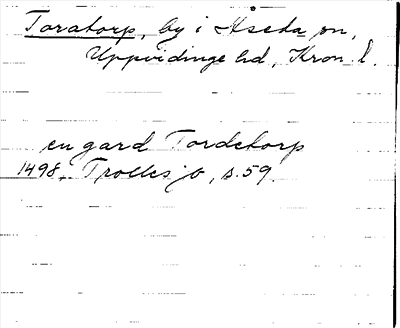 Toratorp, by i Åseda sn,
Uppvidinge hd, Kron. l.
en gard Tordetorp
1498. Trolles jb, s. 59.